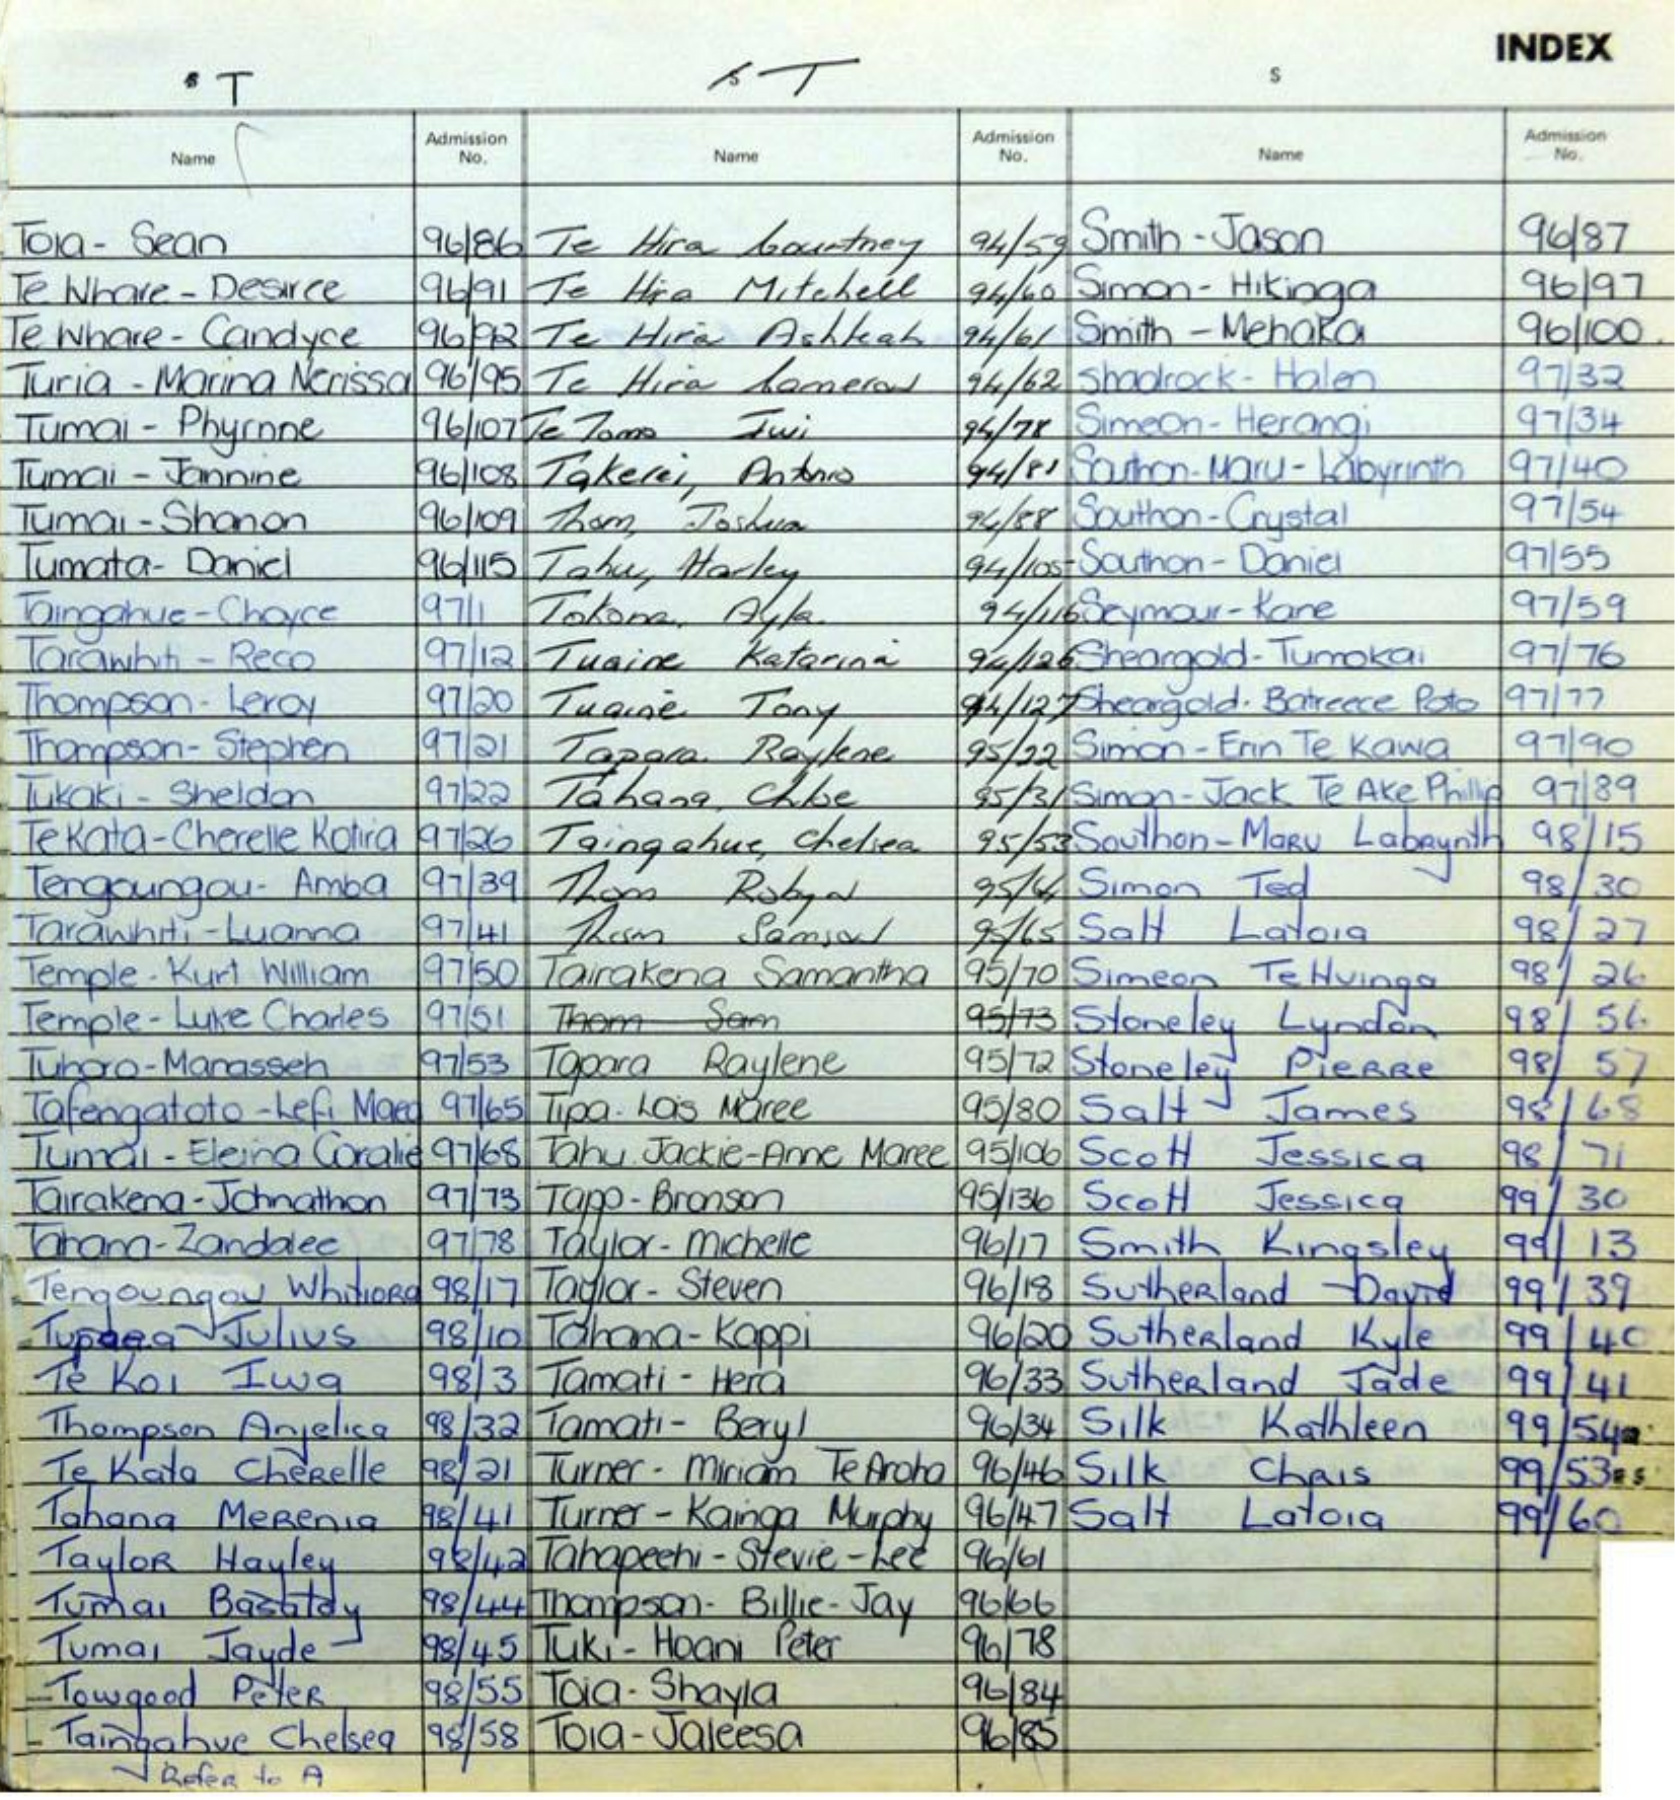 INDEX
s T
s T
s
Name Admission No. Name Admission No. Name Admission No.
Toia - Sean 96/86 Te Hira Courtney 94/59 Smith - Jason 96/87
Te Whare - Desiree 96/91 Te Hira Mitchell 94/60 Simon - Hikinga 96/97
Te Whare - Candyce 96/92 Te Hira Ashleah 94/61 Smith - Mehaka 96/100
Turia - Marina Nerissa 96/95 Te Hira Cameron 94/62 Shadrock - Halen 97/32
Tumai - Phyrnne 96/107 Te Tomo Iwi 94/78 Simeon - Herangi 97/34
Tumai - Jannine 96/108 Takerei, Antonio 94/81 Southon - Maru - Labyrinth 97/40
Tumai - Shanon 96/109 Thom, Joshua 94/88 Southon - Crystal 97/54
Tumata - Daniel 96/115 Tahu, Harley 94/105 Southon - Daniel 97/55
Taingahue - Chayce 97/1 Tokona, Ayla 94/116 Seymour - Kane 97/59
Tarawhiti - Reco 97/12 Tuaine Katarina 94/126 Sheargold - Tumokai 97/76
Thompson - Leroy 97/20 Tuaine Tony 94/127 Sheargold - Batreece Poto 97/77
Thompson - Stephen 97/21 Tapara Raylene 95/22 Simon - Erin Te Kawa 97/90
Tukaki - Sheldon 97/22 Tahana, Chloe 95/31 Simon - Jack Te Ake Phillip 97/89
Te Kata - Cherelle Kotira 97/26 Taingahue, Chelsea 95/53 Southon - Maru Labrynth 98/15
Tengoungou - Amba 97/39 Thom Robyn 95/64 Simon Ted 98/30
Tarawhiti - Luanna 97/41 Thom Samson 95/65 Salt Latoia 98/27
Temple - Kurt William 97/50 Tairakena Samantha 95/70 Simeon Te Huinga 98/26
Temple - Luke Charles 97/51 Thom Sam 95/73 Stoneley Lyndon 98/56
Tuhoro - Manasseh 97/53 Tapara Raylene 95/72 Stoneley Pierre 98/57
Tafengatoto - Lefi Maea 97/65 Tipa - Lois Maree 95/80 Salt James 98/68
Tumai - Eleina Coralie 97/68 Tahu Jackie-Anne Maree 95/106 Scott Jessica 98/71
Tairakena - Johnathon 97/73 Tapp - Bronson 95/136 Scott Jessica 99/30
Tahana - Zandalee 97/78 Taylor - Michelle 96/17 Smith Kingsley 99/13
Tengoungou Whitiora 98/17 Taylor - Steven 96/18 Sutherland David 99/39
Tupaea Julius 98/10 Tahana - Kappi 96/20 Sutherland Kyle 99/40
Te Koi Iwa 98/3 Tamati - Hera 96/33 Sutherland Jade 99/41
Thompson Anjelica 98/32 Tamati - Beryl 96/34 Silk Kathleen 99/54
Te Kata Cherelle 98/21 Turner - Miriam Te Aroha 96/46 Silk Chris 99/53
Tahana Merenia 98/41 Turner - Kainga Murphy 96/47 Salt Latoia 99/60
Taylor Hayley 98/42 Tahapeehi - Stevie - Lee 96/61
Tumai 98/44 Thompson - Billie - Jay 96/66
Tumai Jayde 98/45 Tuki - Hoani Peter 96/78
Towgood Peter 98/55 Toia - Shayla 96/84
Taingahue Chelsea 98/58 Toia - Jaleesa 96/85
Refer to A